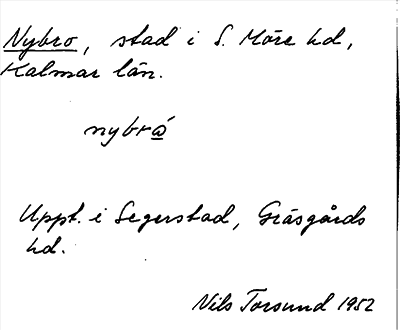 Nybro, stad i S. Möre hd,
Kalmar län.
nybrá
Uppt. i Segerstad, Gräsgårds
hd.
Nils Torsund 1952